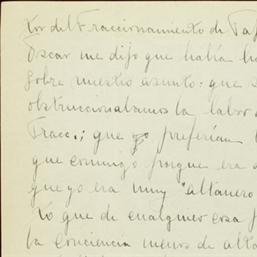 tor del Fraccionamiento de Taj
Oscar me dijo que había ha
sobre nuestro asunto: que s
obstruccionabamos la labor d
Fracc.; que yo preferían
que conmigo porque era d
que yo era muy "altanero
Yo que de cualquier cosa p
la conciencia menos de alta